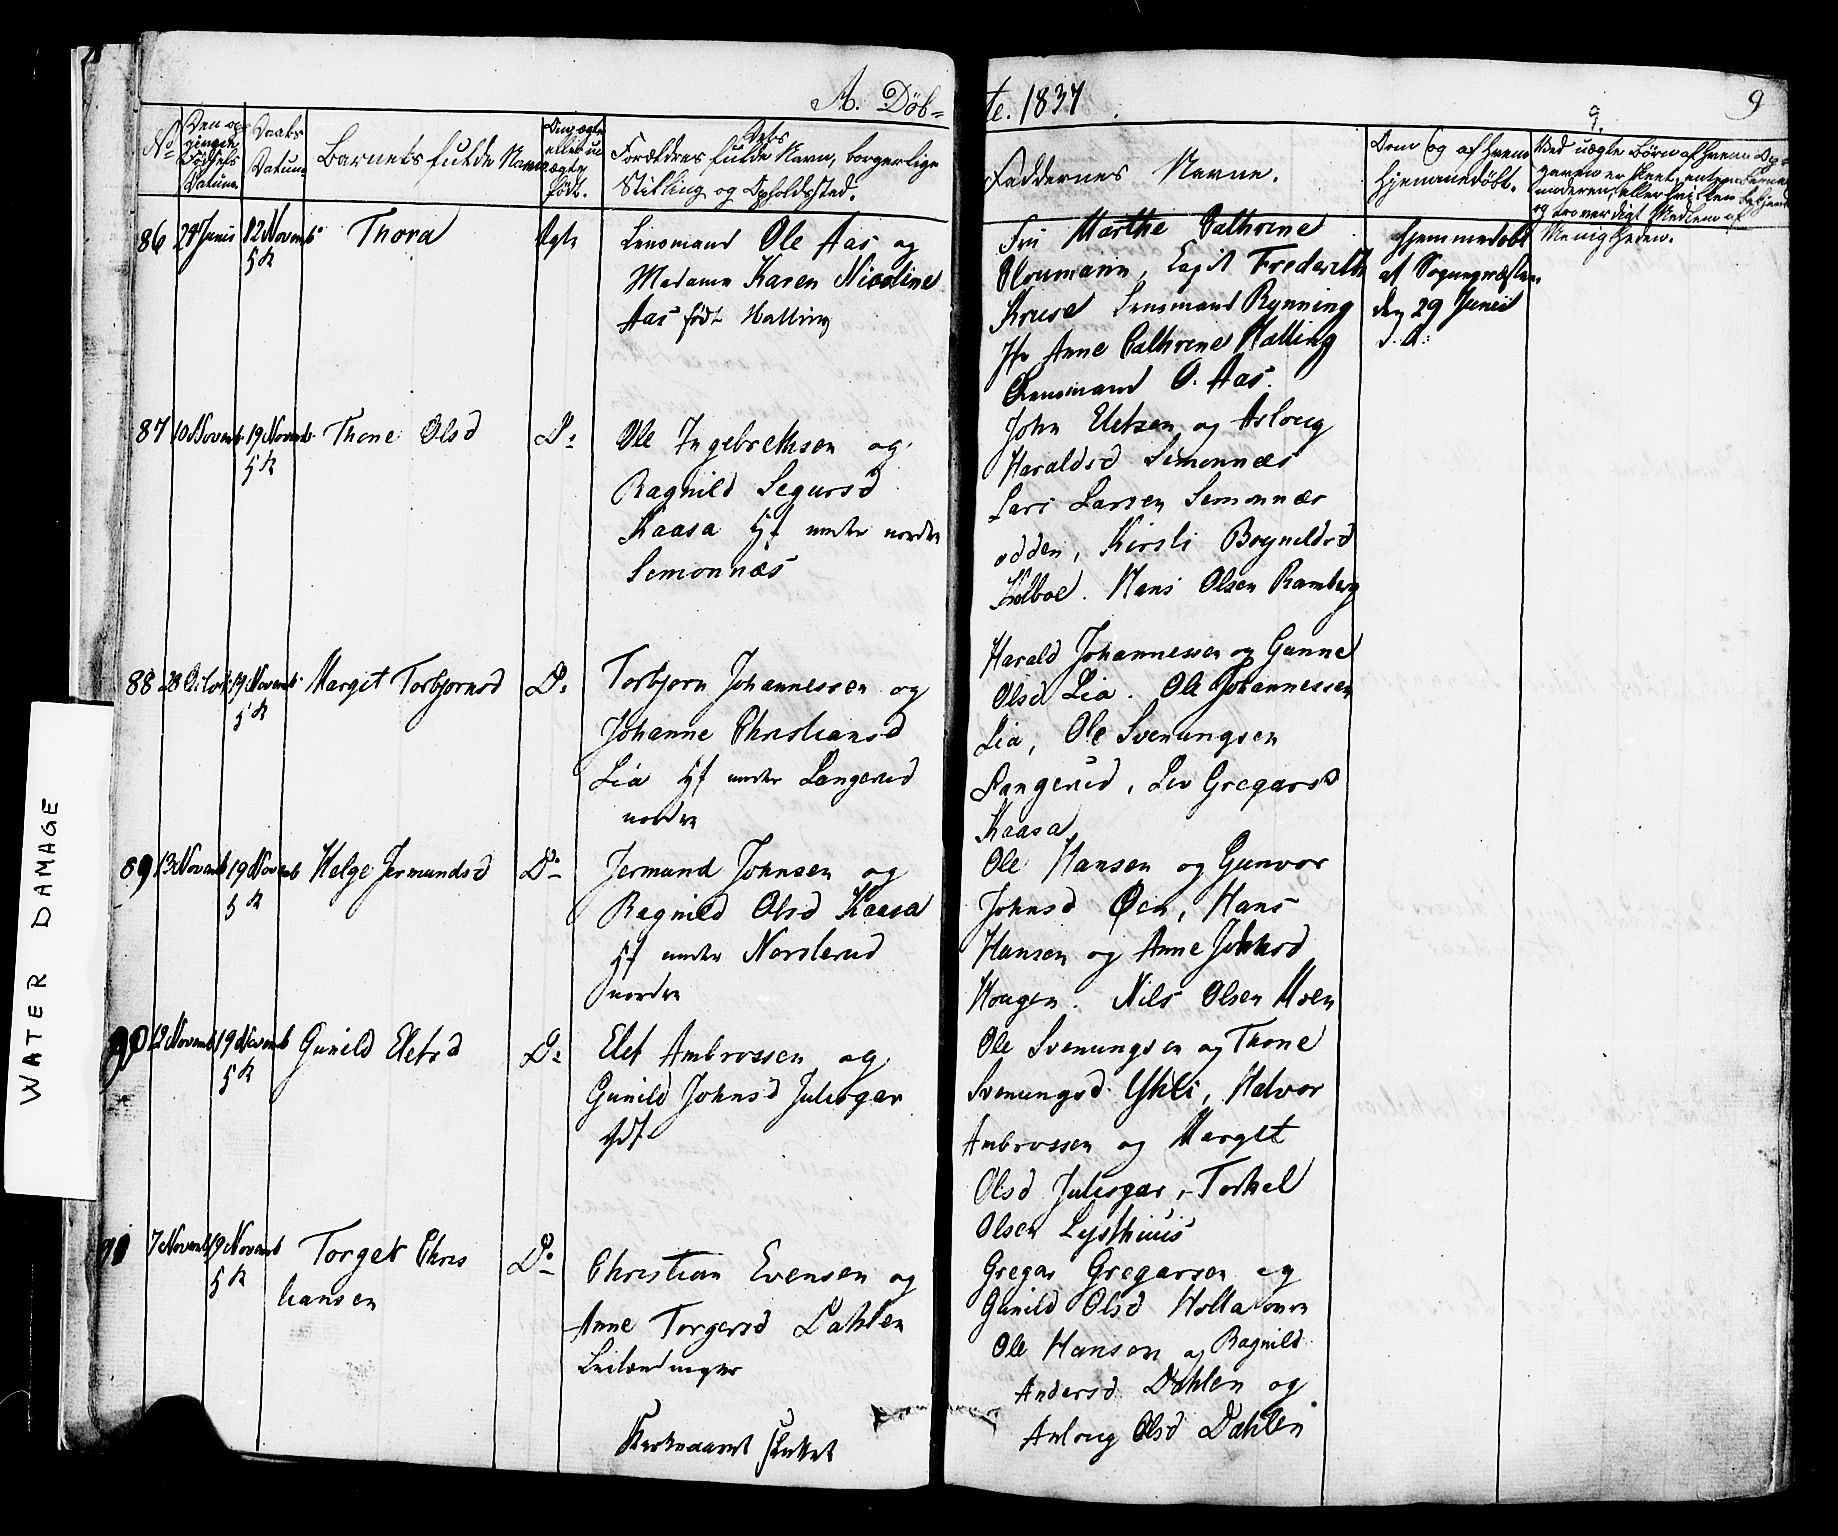 A. Döb=
te. 1837
9
No
Den op
gingen
Födsels
Datum.
Daabs
Datum.
Barnets fulde Navn
Om ægte
eller u
ægte
födt.
Forældres fulde Navn, borgerlige
Stilling og Opholdssted.
Faddernes Navne.
Om og af hvem
hjemmedöbt.
9.
86 24 Junii 12 Novemb Thora Ægte Lensmand Ole Aas og
5 K Madame Karen Nicoline
Aas födt Halling
Fru Marthe Cathrine
Frederik
Kruse Lensmand Rynning
Jfr Anne Cathrine Halling
Lensmand O. Aas.
hjemmedöbt
af Sognepræsten
den 29 Junii
d. A.
Menigheden.
87 10 Novemb 19 Novemb Thone Olsd Do Ole Ingebrethsen og
5 K Ragnild Segursd
Kaasa Hf under nordre
Simonnæs
John Eletsen og Asloug
Haraldsd Simonnæs
Lars Larsen Simonnæs
odden, Kirsti Boynildsd
Kolboe. Hans Olsen Ramberg
88 28 Octob 19 Novemb Margit Torbjornsd Do Torbjorn Johannessen og
5 K Johanne Christiansd
Lia Hf under Langerud
nordre
Harald Johannessen og Gunne
Olsd Lia. Ole Johannessen
Lia, Ole Svenungsen
Langerud, Liv Gregarsd
Kaasa
89 13 Novemb 19 Novemb Helge Jermundsd Do Jermund Johnsen og
5 K Ragnild Olsd Kaasa
Hf under Norsterud
nordre
Ole Hansen og Gunvor
Johnsd Öen, Hans
Hansen og Anne Johnsd
Hougen. Nils Olsen Moen
90 12 Novemb 19 Novemb Gunild Eletsd Do Elet Ambrossen og
5 K Gunild Johnsd Julisgar
Ole Svenungsen og Thone
Svenungsd Ysteli, Halvor
Ambrossen og Margit
Olsd Julisgar, Torkel
Olsen Lysthuus
91 7 Novemb 19 Novemb Torger Chris Do Christian Evensen og
5 K tiansen Anne Torgersd Dahlen
Leilændinger
Gregar Gregarsen og
Gunild Olsd Holta
Ole Hansen og Ragnild
Andersd Dahlen og
Anloug Olsd Dahlen
WATER DAMAGE